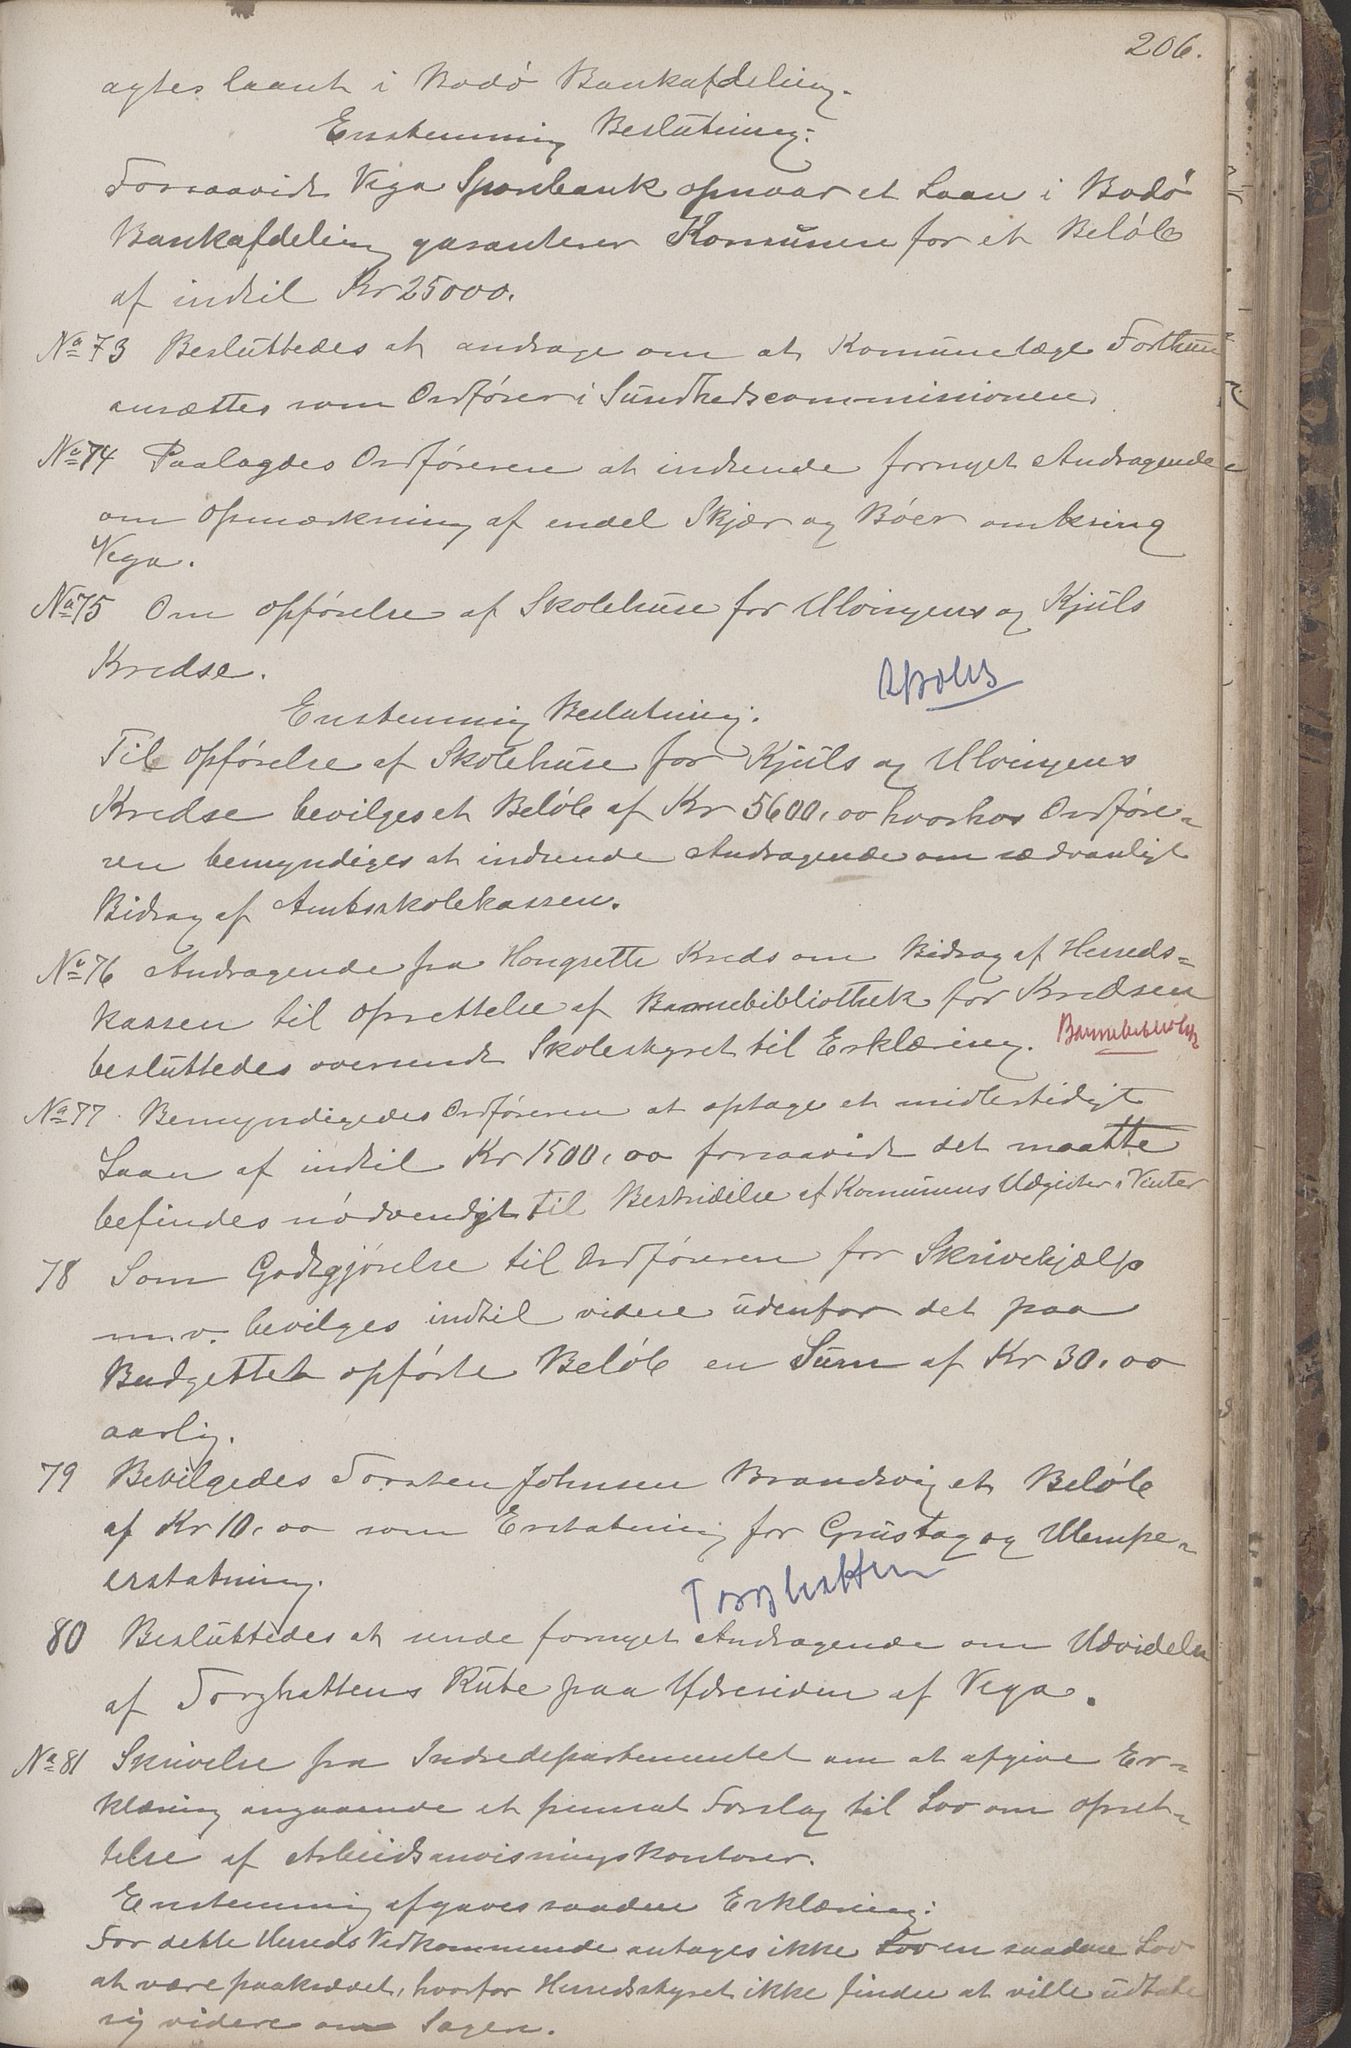 206.
agtes laant i Bodø Bankafdeling.
Enstemmig Beslutning:
Forsaavidt Vega Sparebank opnaar et Laan i Bodø
Bankafdeling garanterer Komunen for et Beløb
af indtil Kr 25000.
No 73 Besluttedes at andrage om at Komunelæge
ansættes som Ordfører i Sundhedscommissionen.
No 74 Paalagdes Ordføreren at indsende fornyet Andragende
om Opmerkning af endel Skjær og Bøer omkring
Vega.
No 75 Om Opførelse af Skolehuse for Ulvingens og Kjuls
Kredse.
Enstemmig Beslutning.
Til Opførelse af Skolehuse for Kjuls og Ulvingens
Kredse bevilges et Beløb af Kr 5600,00 hvorhos Ordføre-
ren bemyndiges at indsende Andragende om sædvanligt
Bidrag af Amtsskolekassen.
No 76 Andragende fra Kreds om Bidrag af Herreds-
kassen til Oprettelse af Barnebibliothek for Kredsen
besluttedes oversendt Skolestyret til Erklæring. Barnebibliothek
No 77 Bemyndigedes Ordføreren at optage et midlertidigt
Laan af indtil Kr 1500,00 forsaavidt det maatte
befindes nødvendigt til Bestridelse af Komunens Udgifter i Vinter
78 Som Godtgjørelse til Ordføreren for Skrivehjælp
m.v. bevilges indtil videre udenfor det paa
Budgettet opførte Beløb en Sum af Kr 30,00
aarlig.
79 Bevilgedes Torsten Johnsen Brandsvig et Beløb
af Kr 10,00 som Erstatning for Grustag og Ulempe-
erstatning.
Torghatten
80 Besluttedes at sende fornyet Andragende om Udvidelse
af Torghattens Rute paa Ydresiden af Vega.
No 81 Skrivelse fra Indredepartementet om at afgive Er-
klæring angaaende et fremsat Forslag til Lov om opret-
telse af Arbeidsanvisningskontorer.
Enstemmig afgaves saadan Erklæring:
For dette Herreds Vedkommende antages ikke Lov en saadan Lov
at være paakrævet, hvorfor Herredsstyret ikke finder at ville udtale
sig videre om Sagen.